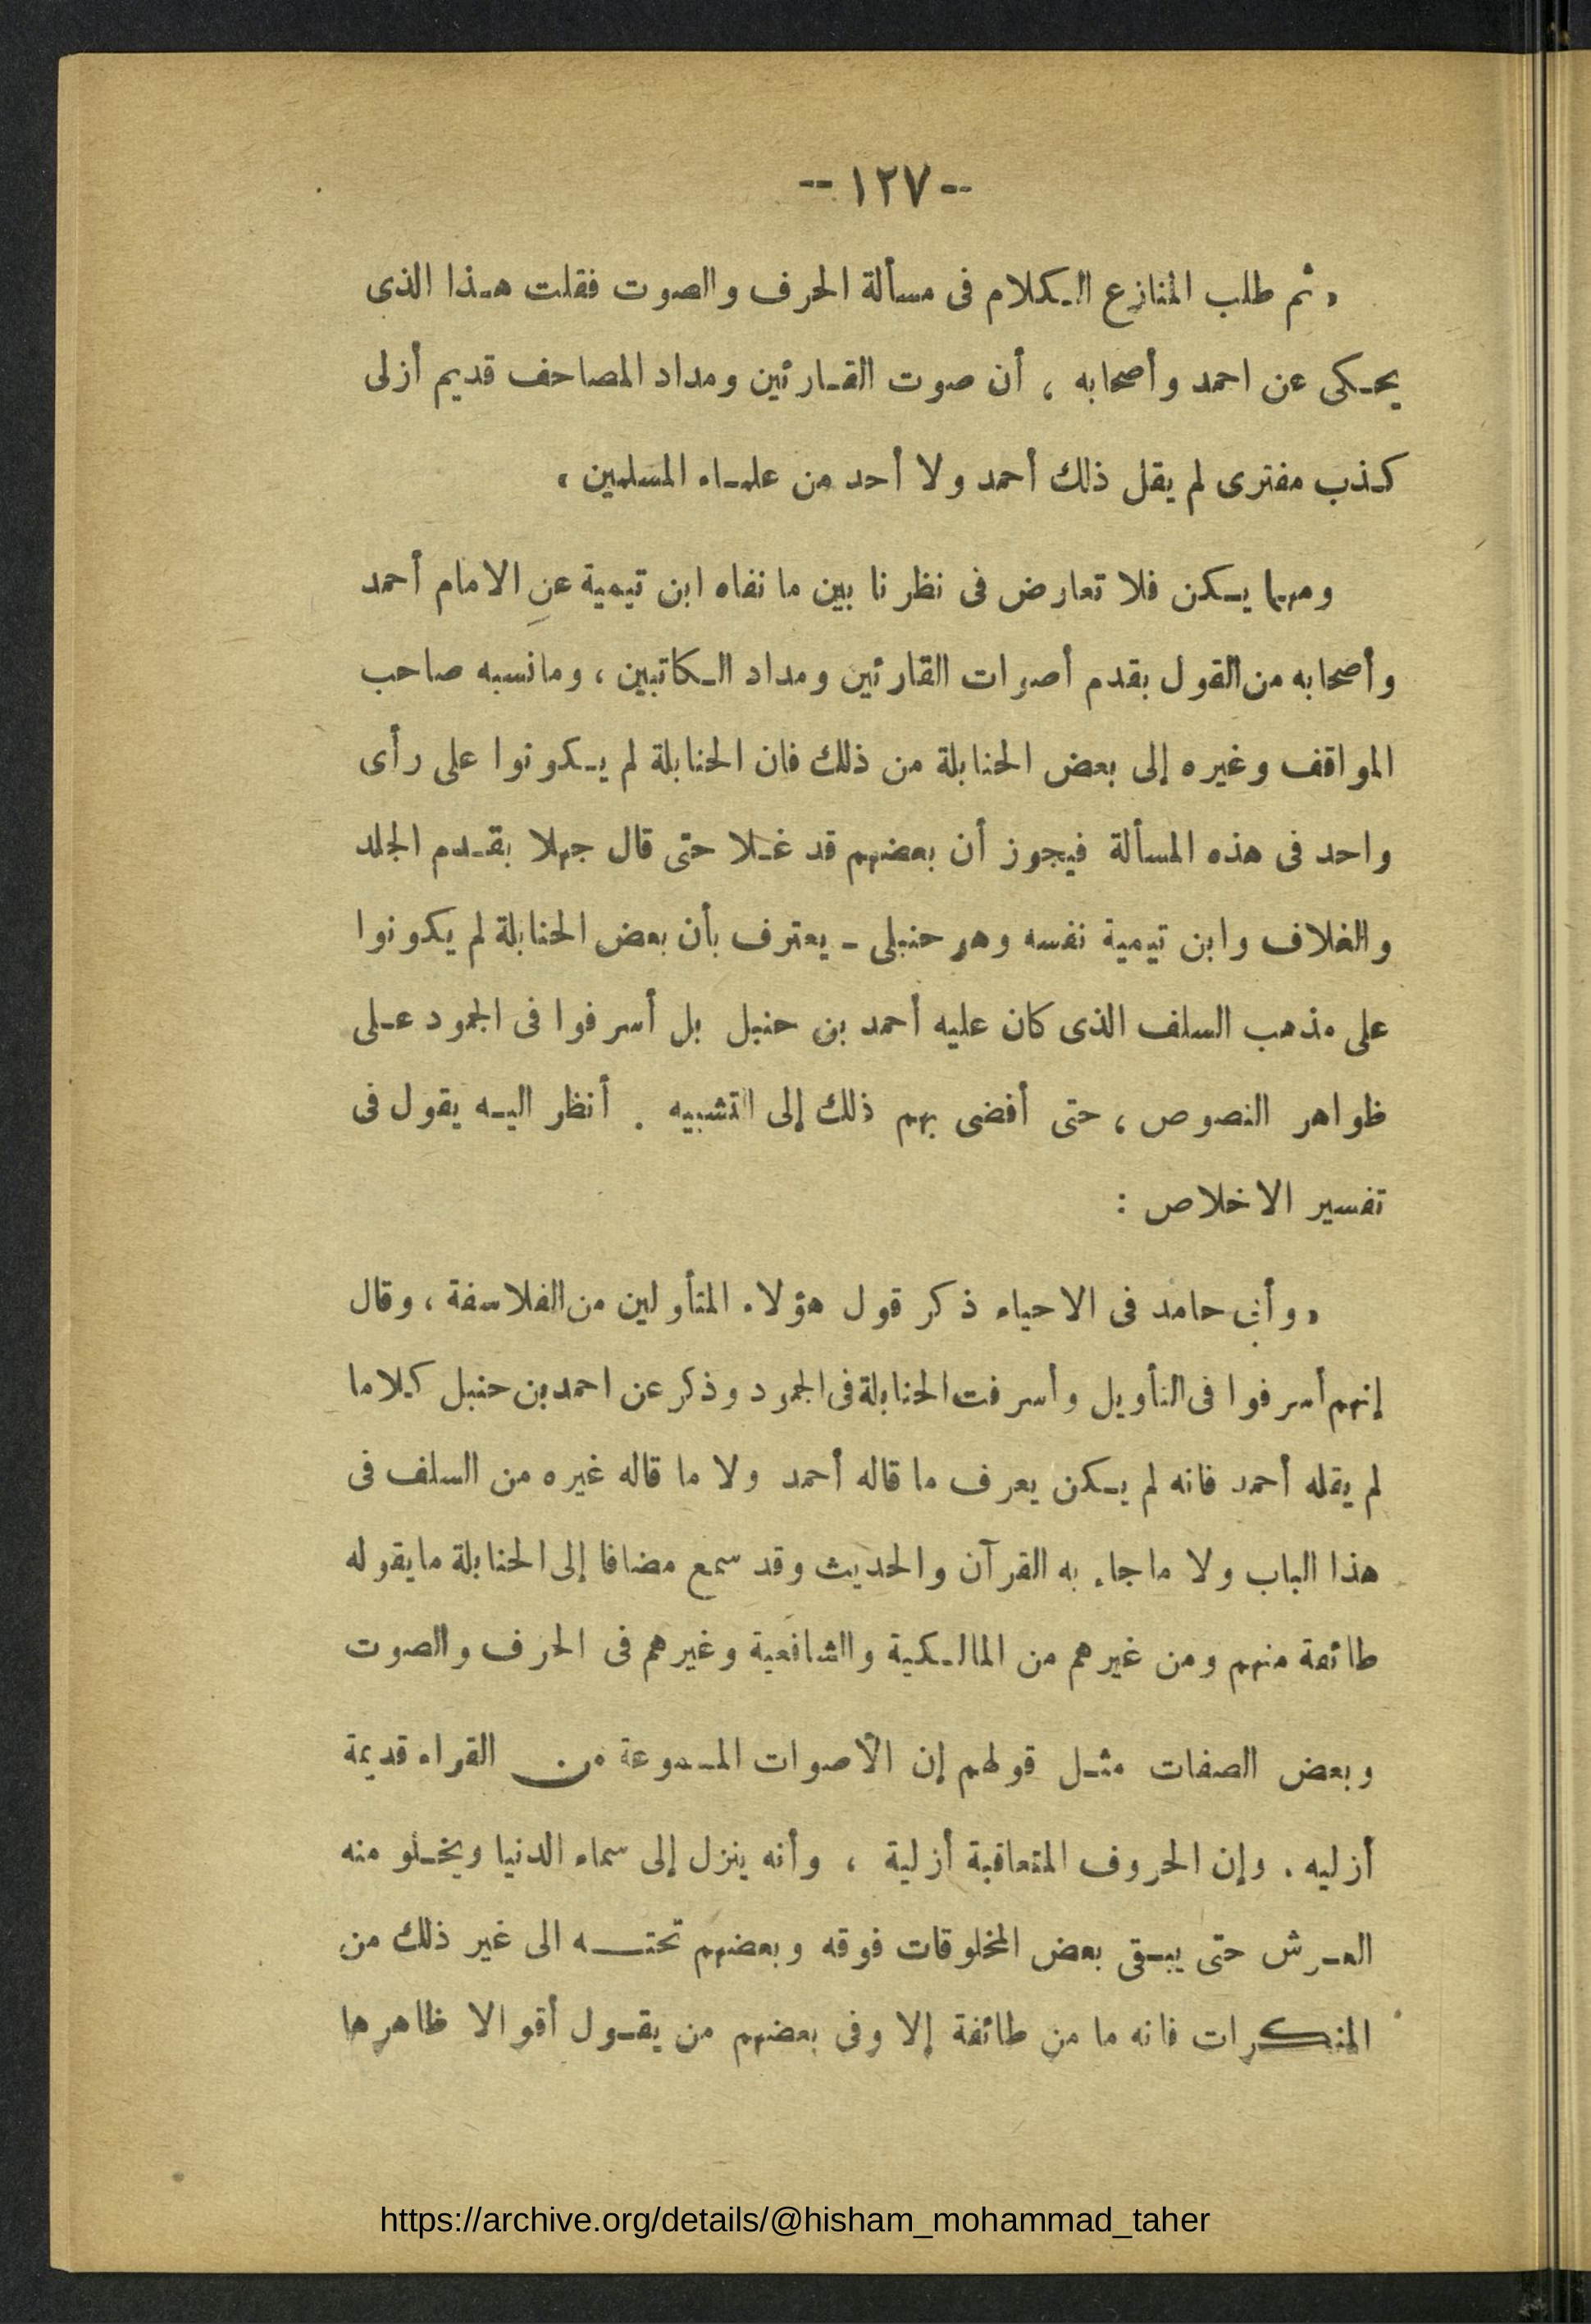 -- ١٢٧ --
« ثم طلب المنازع الكلام فى مسألة الحرف والصوت فقلت هذا الذى
يحكى عن احمد وأصحابه ، أن صوت القارئين ومداد المصاحف قديم أزلى
كذب مفترى لم يقل ذلك أحمد ولا أحد من علماء المسلمين »
ومهما يكن فلا تعارض فى نظرنا بين ما نفاه ابن تيمية عن الامام أحمد
وأصحابه من القول بقدم أصوات القارئين ومداد الكاتبين ، وما نسبه صاحب
المواقف وغيره إلى بعض الحنابلة من ذلك فان الحنابلة لم يكونوا على رأى
واحد فى هذه المسألة فيجوز أن بعضهم قد غلا حتى قال جهلا بقدم الجلد
والغلاف وابن تيمية نفسه وهو حنبلى - يعترف بأن بعض الحنابلة لم يكونوا
على مذهب السلف الذى كان عليه أحمد بن حنبل بل أسرفوا فى الجمود على
ظواهر النصوص ، حتى أفضى بهم ذلك إلى التشبيه . أنظر اليه يقول فى
تفسير الاخلاص :
« وأبى حامد فى الاحياء ذكر قول هؤلاء المتأولين من الفلاسفة ، وقال
إنهم أسرفوا فى التأويل وأسرفت الحنابلة فى الجمود وذكر عن احمد بن حنبل كلاما
لم يقله أحمد فانه لم يكن يعرف ما قاله أحمد ولا ما قاله غيره من السلف فى
هذا الباب ولا ما جاء به القرآن والحديث وقد سمع مضافا إلى الحنابلة ما يقوله
طائفة منهم ومن غيرهم من المالكية والشافعية وغيرهم فى الحرف والصوت
وبعض الصفات مثل قولهم إن الأصوات المسموعة من القراء قديمة
أزليه . وإن الحروف المتعاقبة أزلية ، وأنه ينزل إلى سماء الدنيا ويخلو منه
العرش حتى يبقى بعض المخلوقات فوقه وبعضهم تحته الى غير ذلك من
المنكرات فانه ما من طائفة إلا وفى بعضهم من يقول أقوالا ظاهرها
https://archive.org/details/@hisham_mohammad_taher